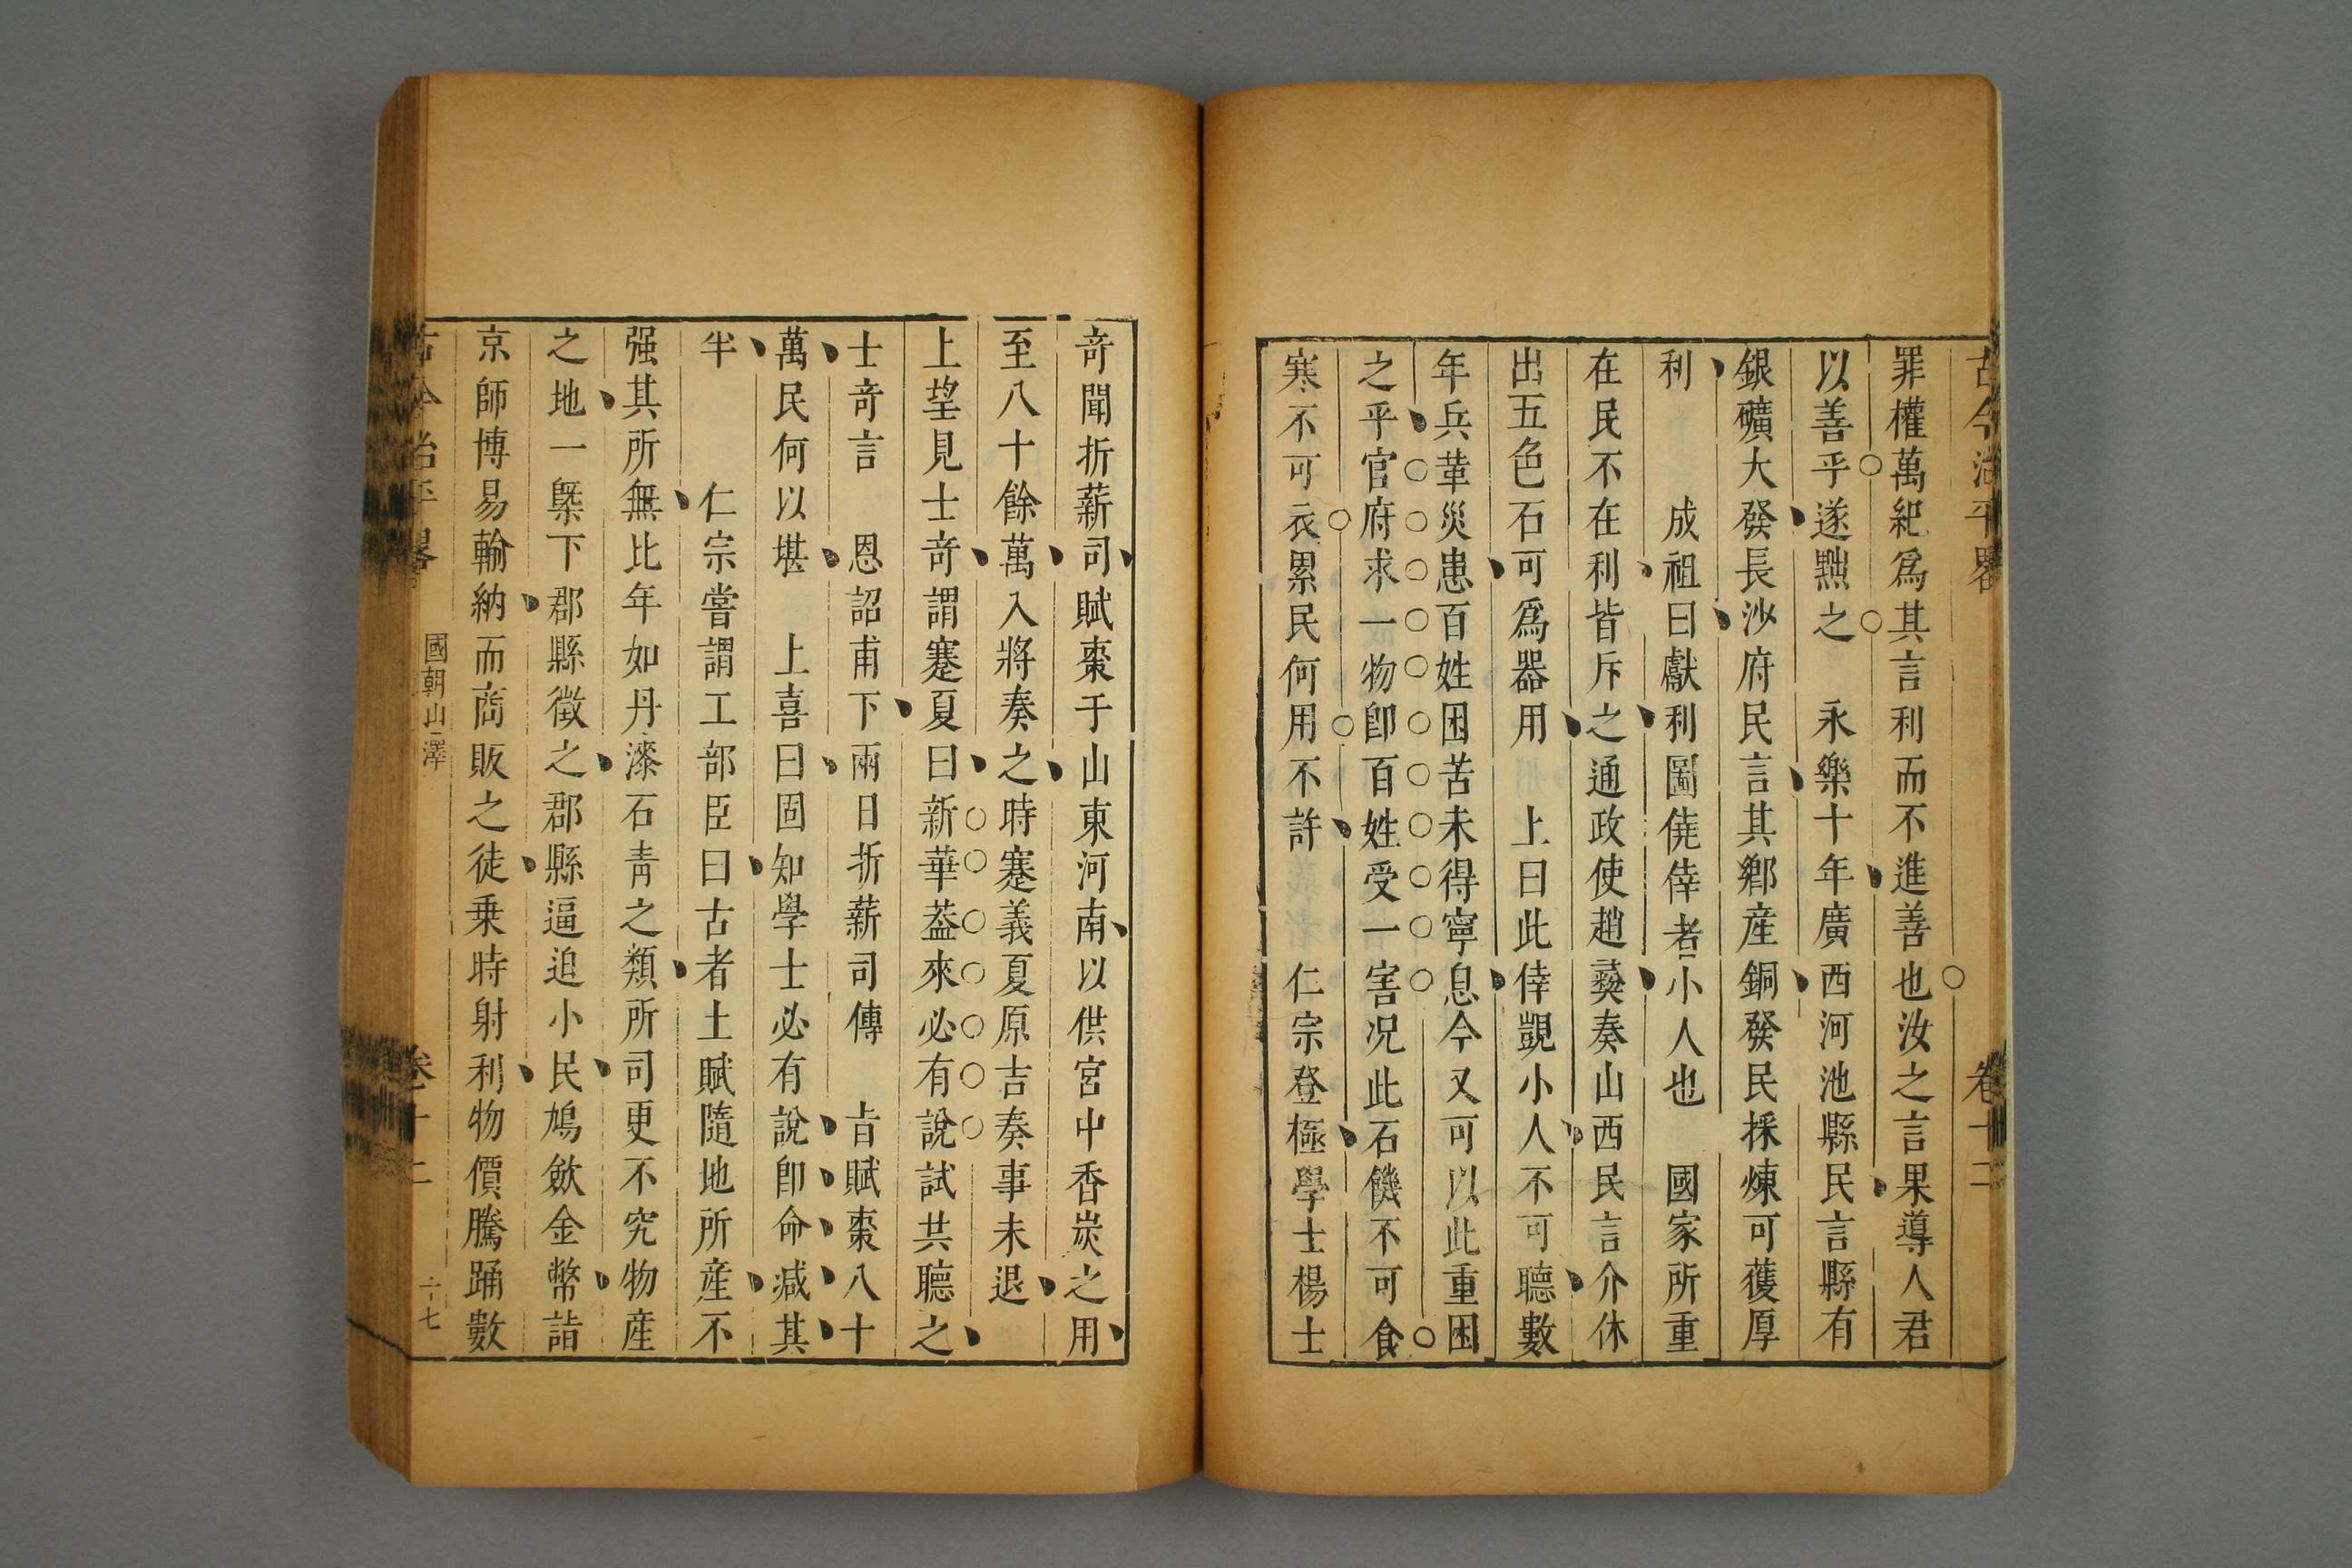 古今治平畧 卷十二
罪權萬紀爲其言利而不進善也汝之言果導人君
以善乎遂黜之 永樂十年廣西河池縣民言縣有
銀礦大發長沙府民言其鄉産銅發民採煉可獲厚
利 成祖曰獻利圖僥倖者小人也 國家所重
在民不在利皆斥之通政使趙彛奏山西民言介休
出五色石可爲器用 上曰此倖覬小人不可聽數
年兵革災患百姓困苦未得寧息今又可以此重困
之乎官府求一物卽百姓受一害况此石饑不可食
寒不可衣累民何用不許 仁宗登極學士楊士
奇聞折薪司賦棗于山東河南以供宮中香炭之用
至八十餘萬入將奏之時蹇義夏原吉奏事未退
上望見士奇謂蹇夏曰新華葢來必有說試共聽之
士奇言 恩詔甫下兩日折薪司傳 㫖賦棗八十
萬民何以堪 上喜曰固知學士必有說卽命减其
半 仁宗嘗謂工部臣曰古者土賦隨地所産不
强其所無比年如丹漆石青之類所司更不究物産
之地一槩下郡縣徵之郡縣逼迫小民鳩歛金幣詣
京師博易輸納而商販之徒乗時射利物價騰踊數
古今治平畧 國朝山澤 卷十二 六十七